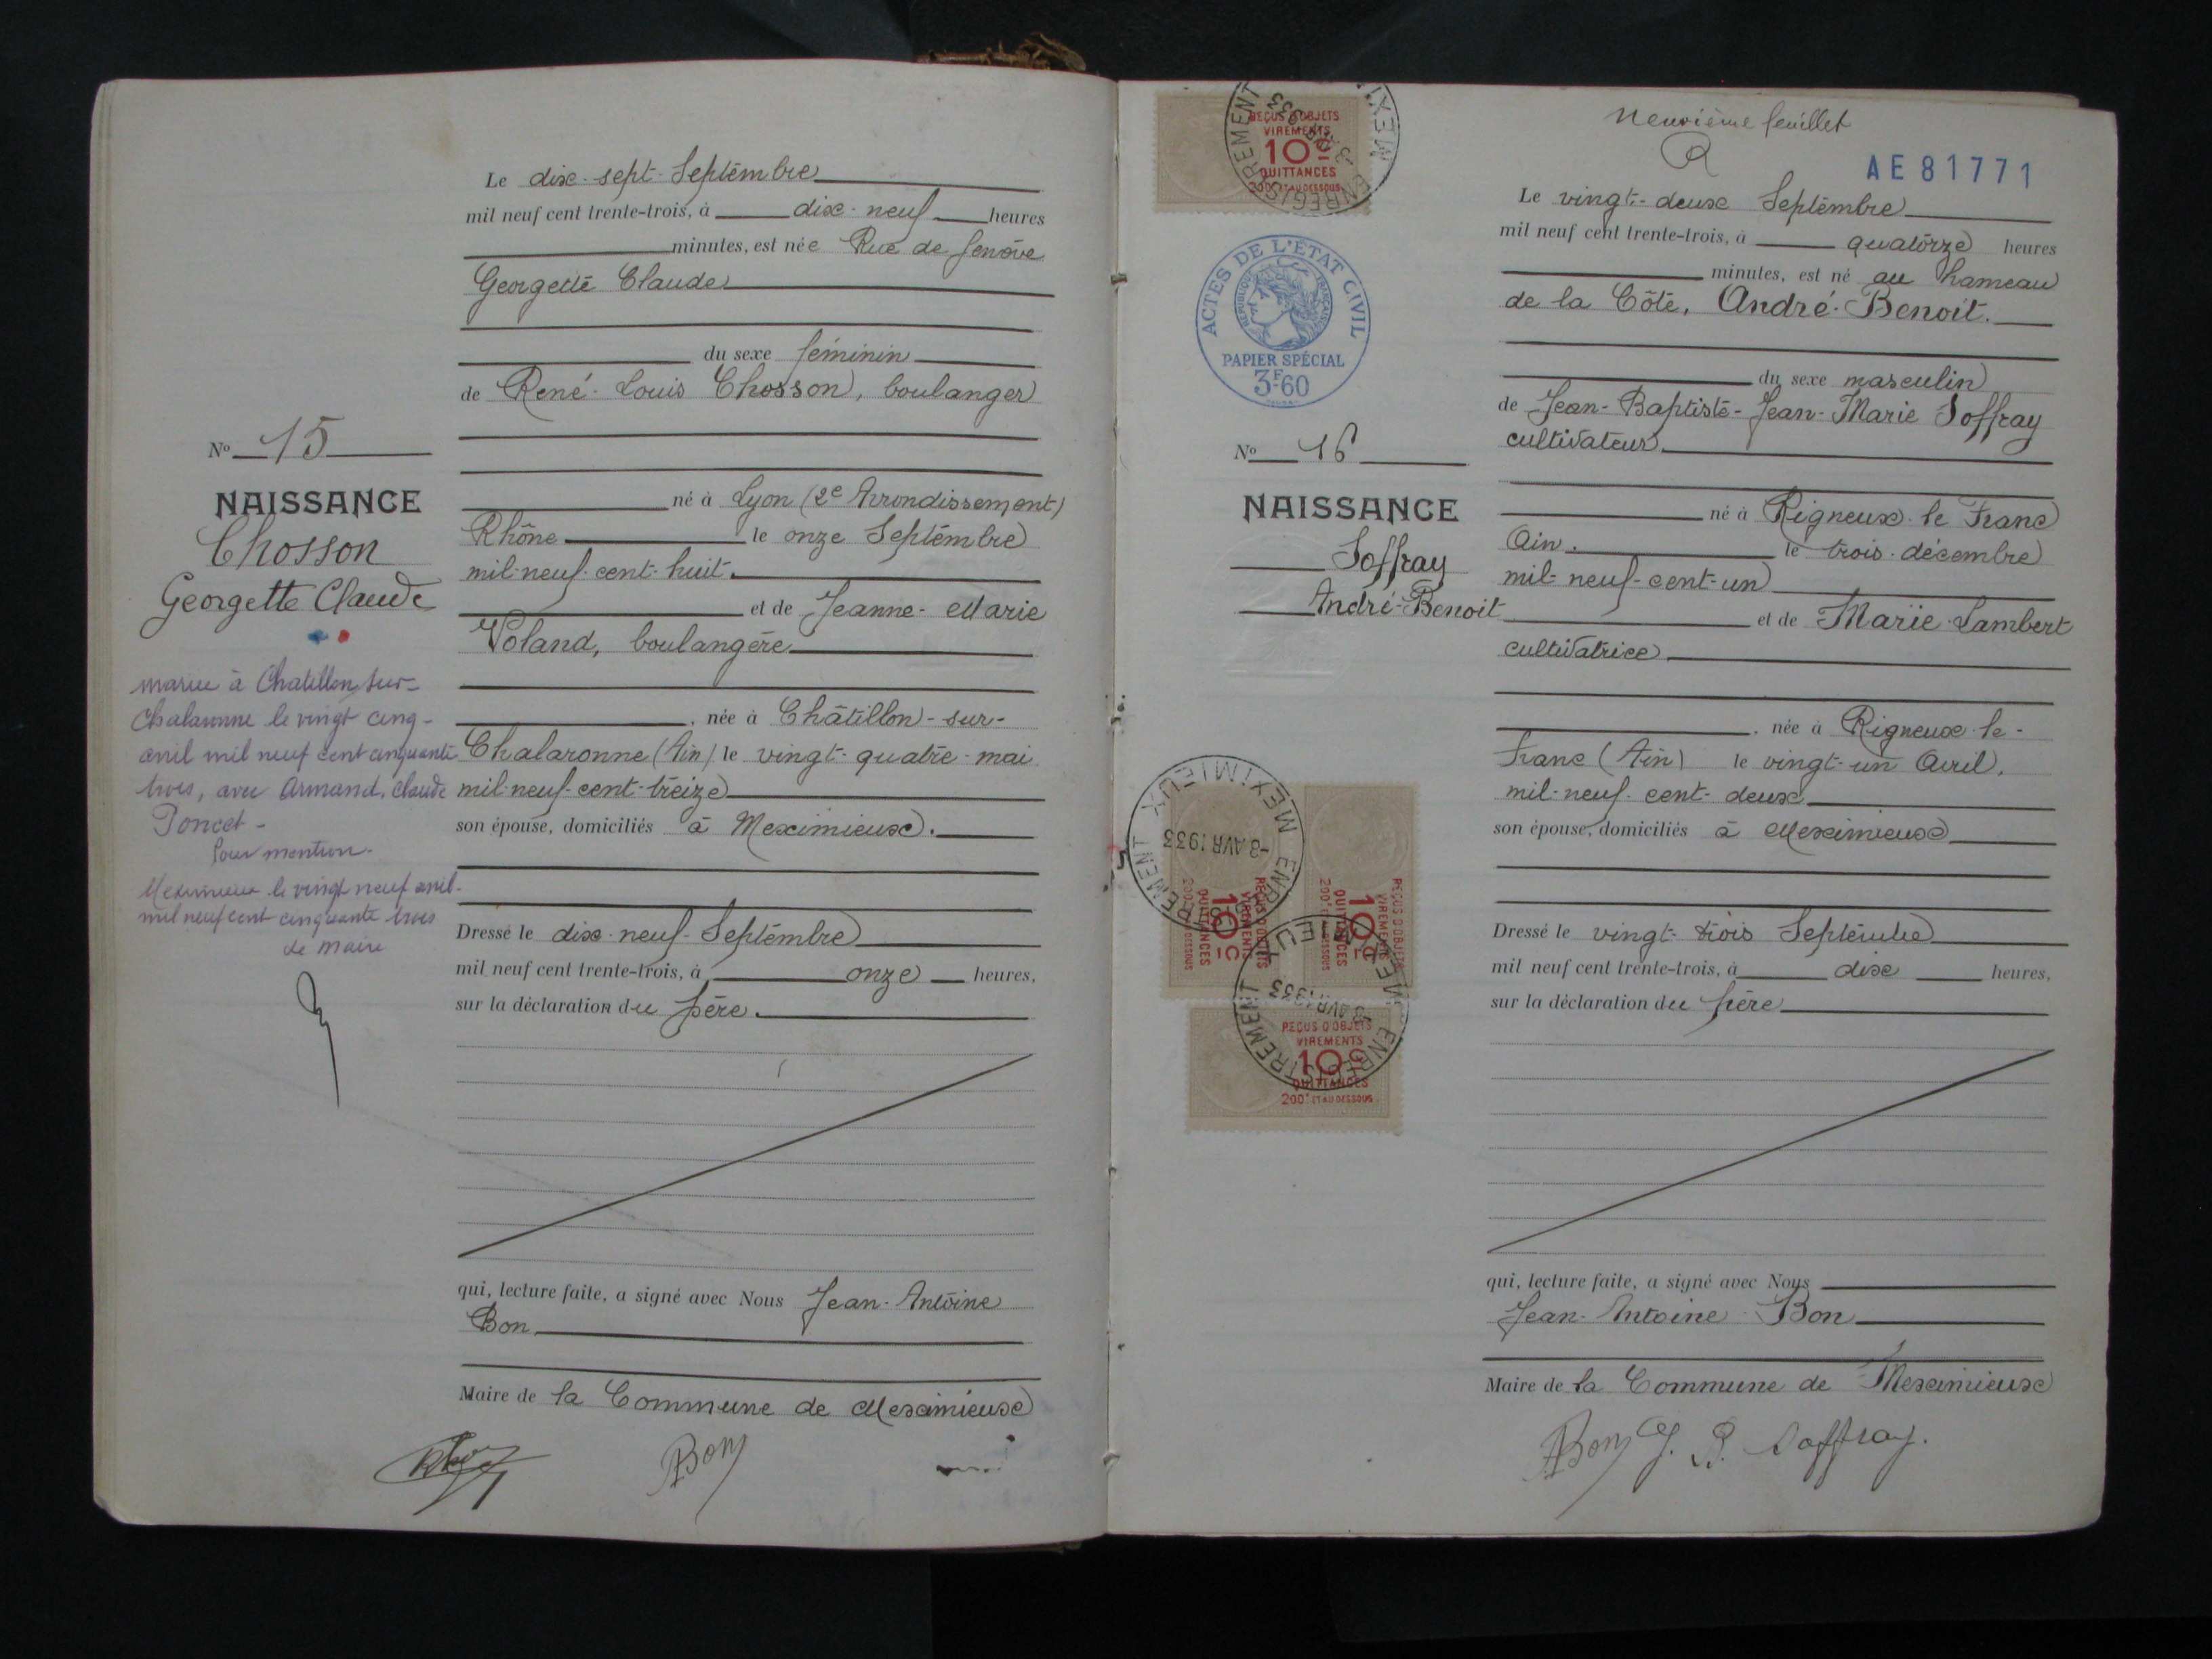 Le dix-sept Septembre
mil neuf cent trente-trois, à dix-neuf heures
minutes, est née Rue de Genève
Georgette Claude
du sexe féminin
de René-Louis Chosson, boulanger
né à Lyon (2e Arrondissement)
Rhône le onze Septembre
mil-neuf-cent-huit.
et de Jeanne-Marie
Voland, boulangère
, née à Châtillon-sur-
Chalaronne (Ain) le vingt-quatre-mai
mil-neuf-cent-treize
son épouse, domiciliés à Meximieux.
Dressé le dix-neuf-Septembre
mil neuf cent trente-trois, à onze heures,
sur la déclaration du père.
qui, lecture faite, a signé avec Nous Jean-Antoine
Bon
Maire de la Commune de Meximieux
Bon
No 15
NAISSANCE
Chosson
Georgette Claude
mariée à Chatillon sur-
Chalaronne le vingt cinq-
avril mil neuf cent cinquante
trois, avec Armand, Claude
Poncet-
Pour mention-
Meximieux le vingt neuf avril-
mil neuf cent cinquante trois
Le Maire
Neuvième feuillet
AE81771
REÇUS D'OBJETS
VIREMENTS
10c
QUITTANCES
200F ET AU DESSOUS
ENREGISTREMENT
ACTES DE L'ÉTAT CIVIL
RÉPUBLIQUE FRANÇAISE
PAPIER SPÉCIAL
3F60
No 16
NAISSANCE
Joffray
André-Benoit
ENREGISTREMENT MEXIMIEUX
-3 AVR 1933
REÇUS D'OBJETS
VIREMENTS
10c
QUITTANCES
REÇUS D'OBJETS
VIREMENTS
10c
QUITTANCES
200F ET AU DESSOUS
ENREGISTREMENT MEXIMIEUX
3 AVR 1933
REÇUS D'OBJETS
VIREMENTS
10c
QUITTANCES
200F ET AU DESSOUS
Le vingt-deux Septembre
mil neuf cent trente-trois, à quatorze heures
minutes, est né au hameau
de la Côte, André-Benoit.
du sexe masculin
de Jean-Baptiste-Jean-Marie Joffray
cultivateur
né à Rigneux-le Franc
Ain. le trois-décembre
mil-neuf-cent-un
et de Marie Lambert
cultivatrice
, née à Rigneux-le-
Franc (Ain) le vingt-un Avril,
mil-neuf-cent-deux
son épouse, domiciliés à Meximieux
Dressé le vingt-trois Septembre
mil neuf cent trente-trois, à dix heures,
sur la déclaration du père
qui, lecture faite, a signé avec Nous
Jean-Antoine Bon
Maire de la Commune de Meximieux
Bon J. B. Joffray.